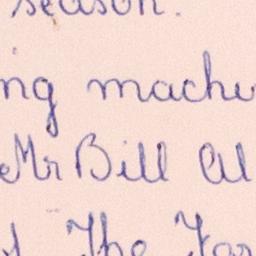 season.
ng machi
Mr Bill Al
The